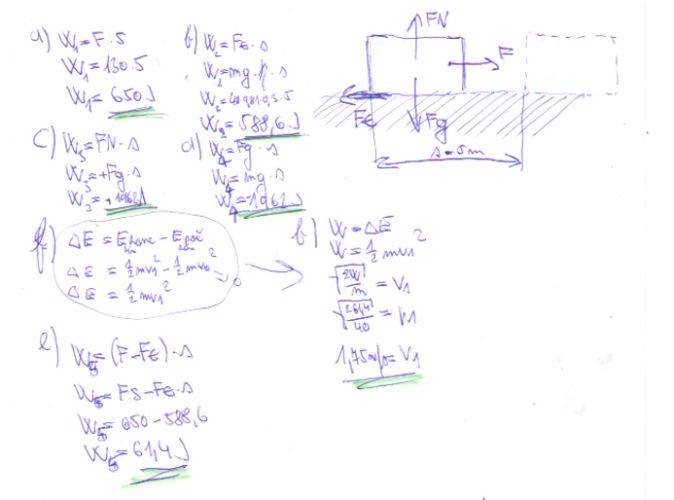 a) W₁ = F · s
W₁ = 130 · 5
W₁ = 650 J
b) W₂ = Ft · s
W₂ = mg · μ · s
W₂ = 588,6 J
c) W₃ = FN · s
W₃ = + Fg · s
W₃ = + 1962 J
d) W₄ = Fg · s
W₄ = mg · s
W₄ = 1962 J
FN
F
Ft
Fg
s = 5m
f) ΔE = Ekonc - Epoč
ΔE = ½mv₁² - ½mv₀² = 0
ΔE = ½mv₁²
f) W = ΔE
W = ½mv₁²
√2W/m = v₁
√2·61,4/40 = v₁
1,75 m/s = v₁
e) W₅ = (F - Ft) · s
W₅ = Fs - Ft · s
W₅ = 650 - 588,6
W₅ = 61,4 J